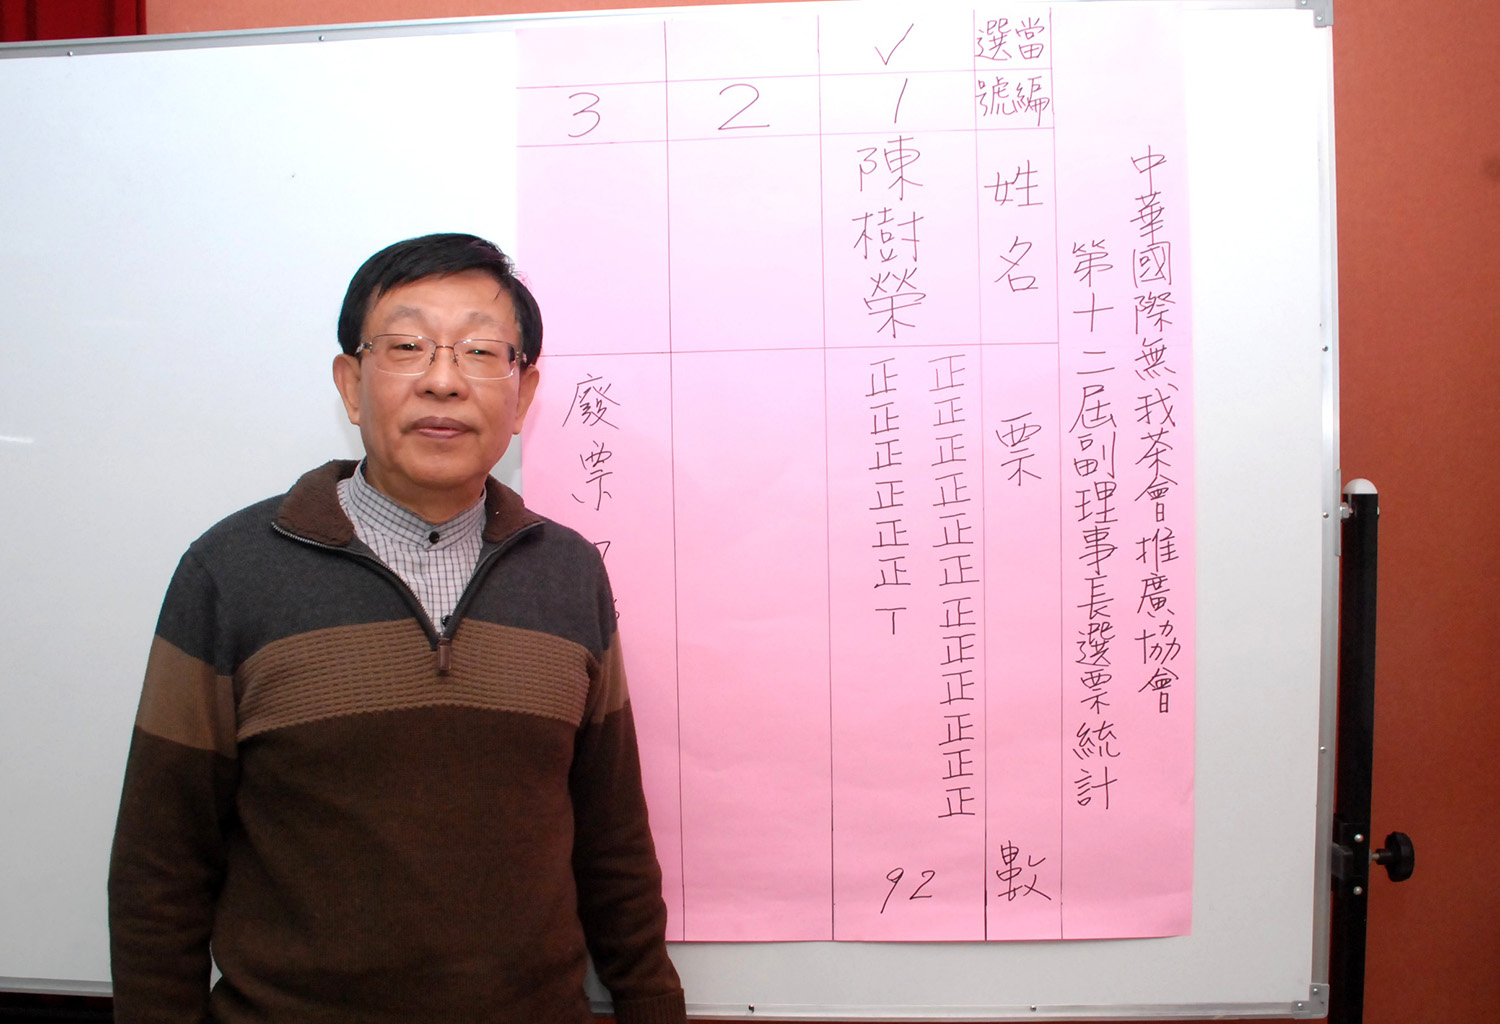 中華國際無我茶會推廣協會
第十二屆副理事長選票統計
當選
編號
姓名
票數
✓
1
陳樹榮
正正正正正正正正正正正正
正正正正正正丅
92
2
3
廢票